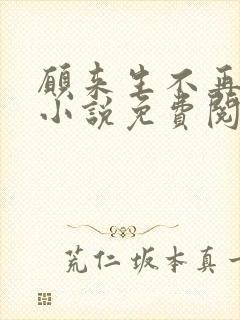 願来生不再
小說免費閱
荒仁坂本真一